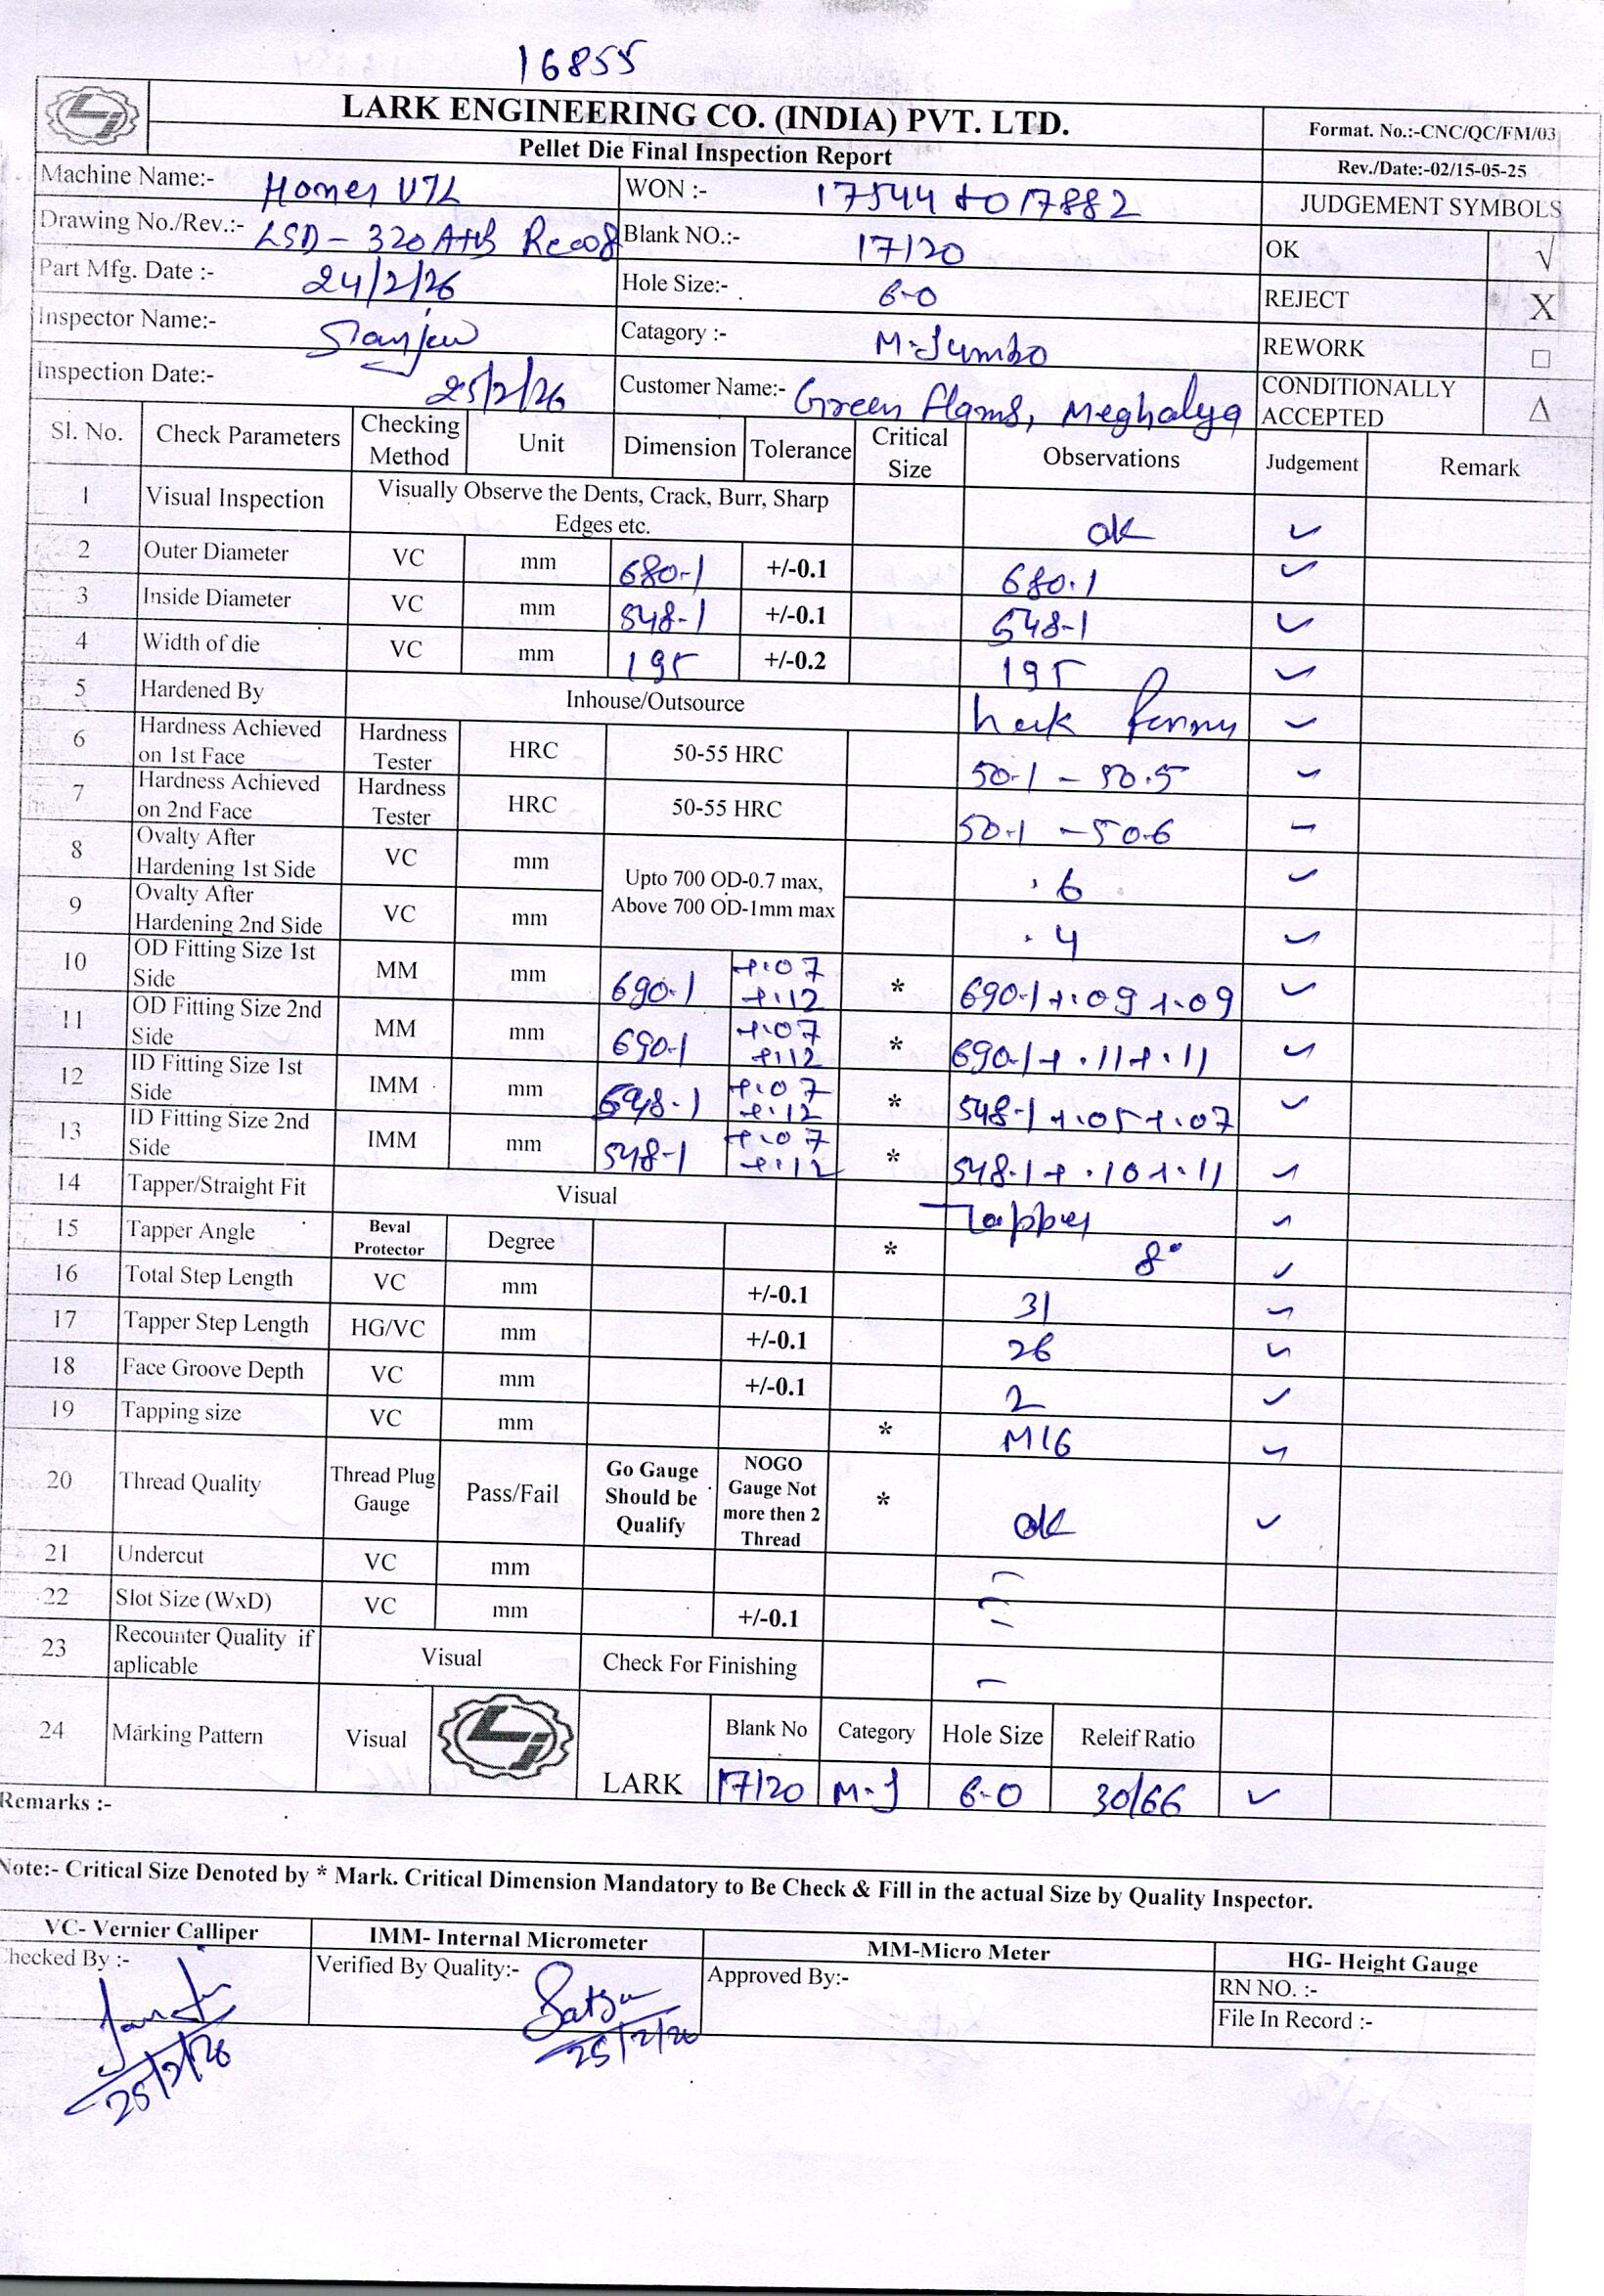 16855
LARK ENGINEERING CO. (INDIA) PVT. LTD.
Format. No.:-CNC/QC/FM/03
Pellet Die Final Inspection Report
Rev./Date:-02/15-05-25
Machine Name:-
WON :- 17544 to 17882
JUDGEMENT SYMBOLS
Drawing No./Rev.:- LSD-320A+B
Blank NO.:- 17120
OK √
Part Mfg. Date :- 24/2/26
Hole Size:- 6-0
REJECT X
Inspector Name:-
Catagory :- M-Jumbo
REWORK □
Inspection Date:- 25/2/26
Customer Name:- Green Flams, Meghalya
CONDITIONALLY ACCEPTED Δ
Sl. No. Check Parameters Checking Method Unit Dimension Tolerance Critical Size Observations Judgement Remark
1 Visual Inspection Visually Observe the Dents, Crack, Burr, Sharp Edges etc. ok ✓
2 Outer Diameter VC mm 680-1 +/-0.1 680.1 ✓
3 Inside Diameter VC mm 548-1 +/-0.1 548-1 ✓
4 Width of die VC mm 195 +/-0.2 195 ✓
5 Hardened By Inhouse/Outsource ✓
6 Hardness Achieved on 1st Face Hardness Tester HRC 50-55 HRC 50.1 - 50.5 ✓
7 Hardness Achieved on 2nd Face Hardness Tester HRC 50-55 HRC 50.1 - 50.6 ✓
8 Ovalty After Hardening 1st Side VC mm Upto 700 OD-0.7 max, Above 700 OD-1mm max .6 ✓
9 Ovalty After Hardening 2nd Side VC mm .4 ✓
10 OD Fitting Size 1st Side MM mm 690.1 +.07 +.12 * 690.1 +.09 +.09 ✓
11 OD Fitting Size 2nd Side MM mm 690.1 +.07 +.12 * 690.1 + .11 + .11 ✓
12 ID Fitting Size 1st Side IMM mm 548.1 +.07 +.12 * 548-1 +.05 +.07 ✓
13 ID Fitting Size 2nd Side IMM mm 548-1 +.07 +.12 * 548.1 + .10 +.11 ✓
14 Tapper/Straight Fit Visual Tapper ✓
15 Tapper Angle Beval Protector Degree * 8° ✓
16 Total Step Length VC mm +/-0.1 31 ✓
17 Tapper Step Length HG/VC mm +/-0.1 26 ✓
18 Face Groove Depth VC mm +/-0.1 2 ✓
19 Tapping size VC mm * M16 ✓
20 Thread Quality Thread Plug Gauge Pass/Fail Go Gauge Should be Qualify NOGO Gauge Not more then 2 Thread * ok ✓
21 Undercut VC mm -
22 Slot Size (WxD) VC mm +/-0.1 -
23 Recounter Quality if aplicable Visual Check For Finishing -
24 Marking Pattern Visual LARK Blank No Category Hole Size Releif Ratio
17120 M-J 6-0 30/66 ✓
Remarks :-
Note:- Critical Size Denoted by * Mark. Critical Dimension Mandatory to Be Check & Fill in the actual Size by Quality Inspector.
VC- Vernier Calliper IMM- Internal Micrometer MM-Micro Meter HG- Height Gauge
Checked By :- Verified By Quality:- Approved By:- RN NO. :-
File In Record :-
25/2/26
25/2/26